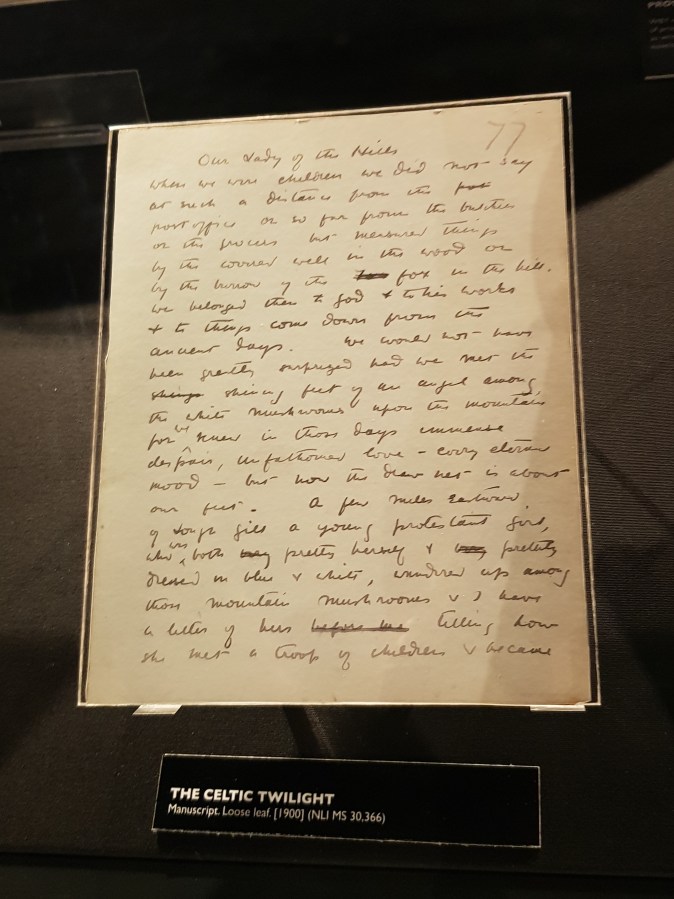 77
Our Lady of the Hills
when we were children we did not say
at such a distance from the post
post office or so far from the butchers
or the grocers but measured things
by the covered well in the wood or
by the burrow of the fox in the hill.
we belonged then to God & to his works
& to things come down from the
ancient days. We would not have
been greatly surprised had we met the
shining feet of an angel among
the white mushrooms upon the mountain
for we knew in those days immense
despair, unfathomed love – every eternal
mood – but now the draw net is about
our feet. A few miles eastward
of Lough Gill a young protestant girl,
who was both pretty herself & prettily
dressed in blue & white, wandered up among
those mountain mushrooms & I have
a letter of hers before me telling how
she met a troop of children & became
THE CELTIC TWILIGHT
Manuscript. Loose leaf. [1900] (NLI MS 30,366)